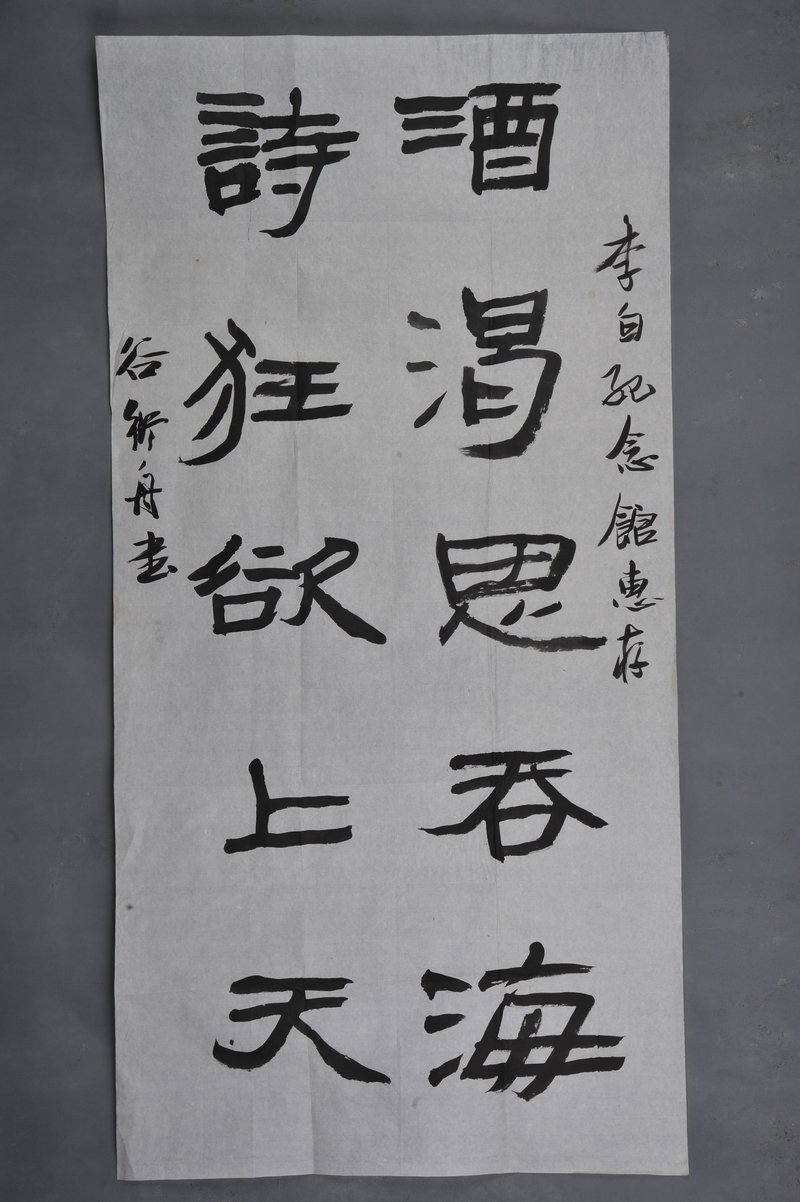 李白纪念館惠存
酒渴思吞海
詩狂欲上天
谷衛舟书